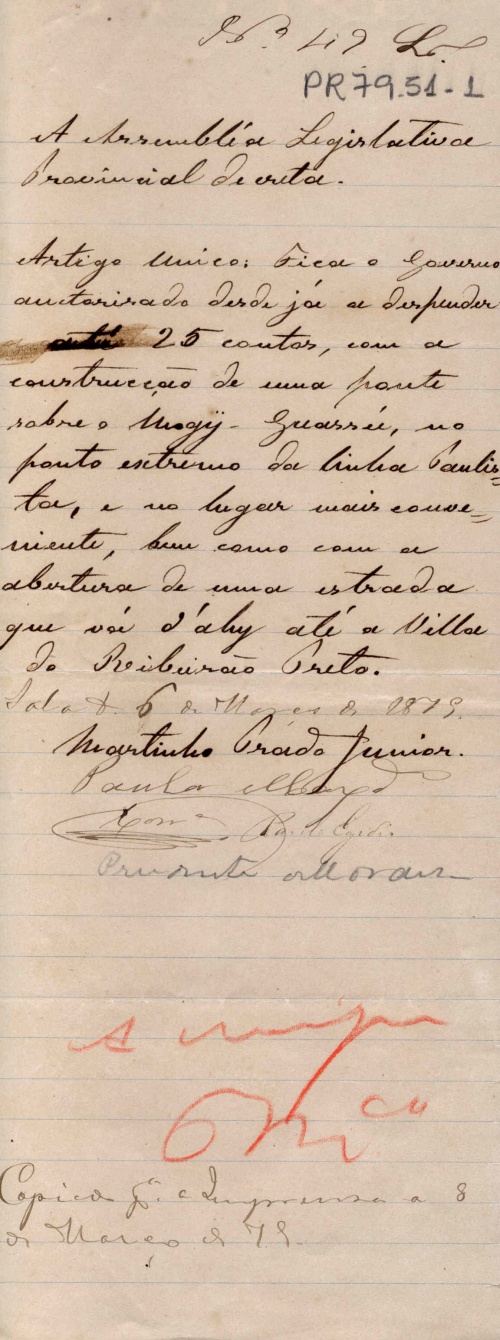 Nº 49 L.
PR79.51-1
A Assembléa Legislativa
Provincial decreta.
Artigo unico: Fica o Governo
auctorisado desde já a despender
até 25 contos, com a
construcção de uma ponte
sobre o Mogÿ-Guassú, no
ponto extremo da linha Paulis-
ta, e no lugar mais conve-
niente, bem como com a
abertura de uma estrada
que vá d'ahy até a Villa
do Ribeirão Preto.
Sala d. 6 de Março de 1879.
Martinho Prado Junior.
Paula
Paulo Egydio
Prudente de Moraes
A
Copiado pª. a Imprensa a 8
de Março de 79.